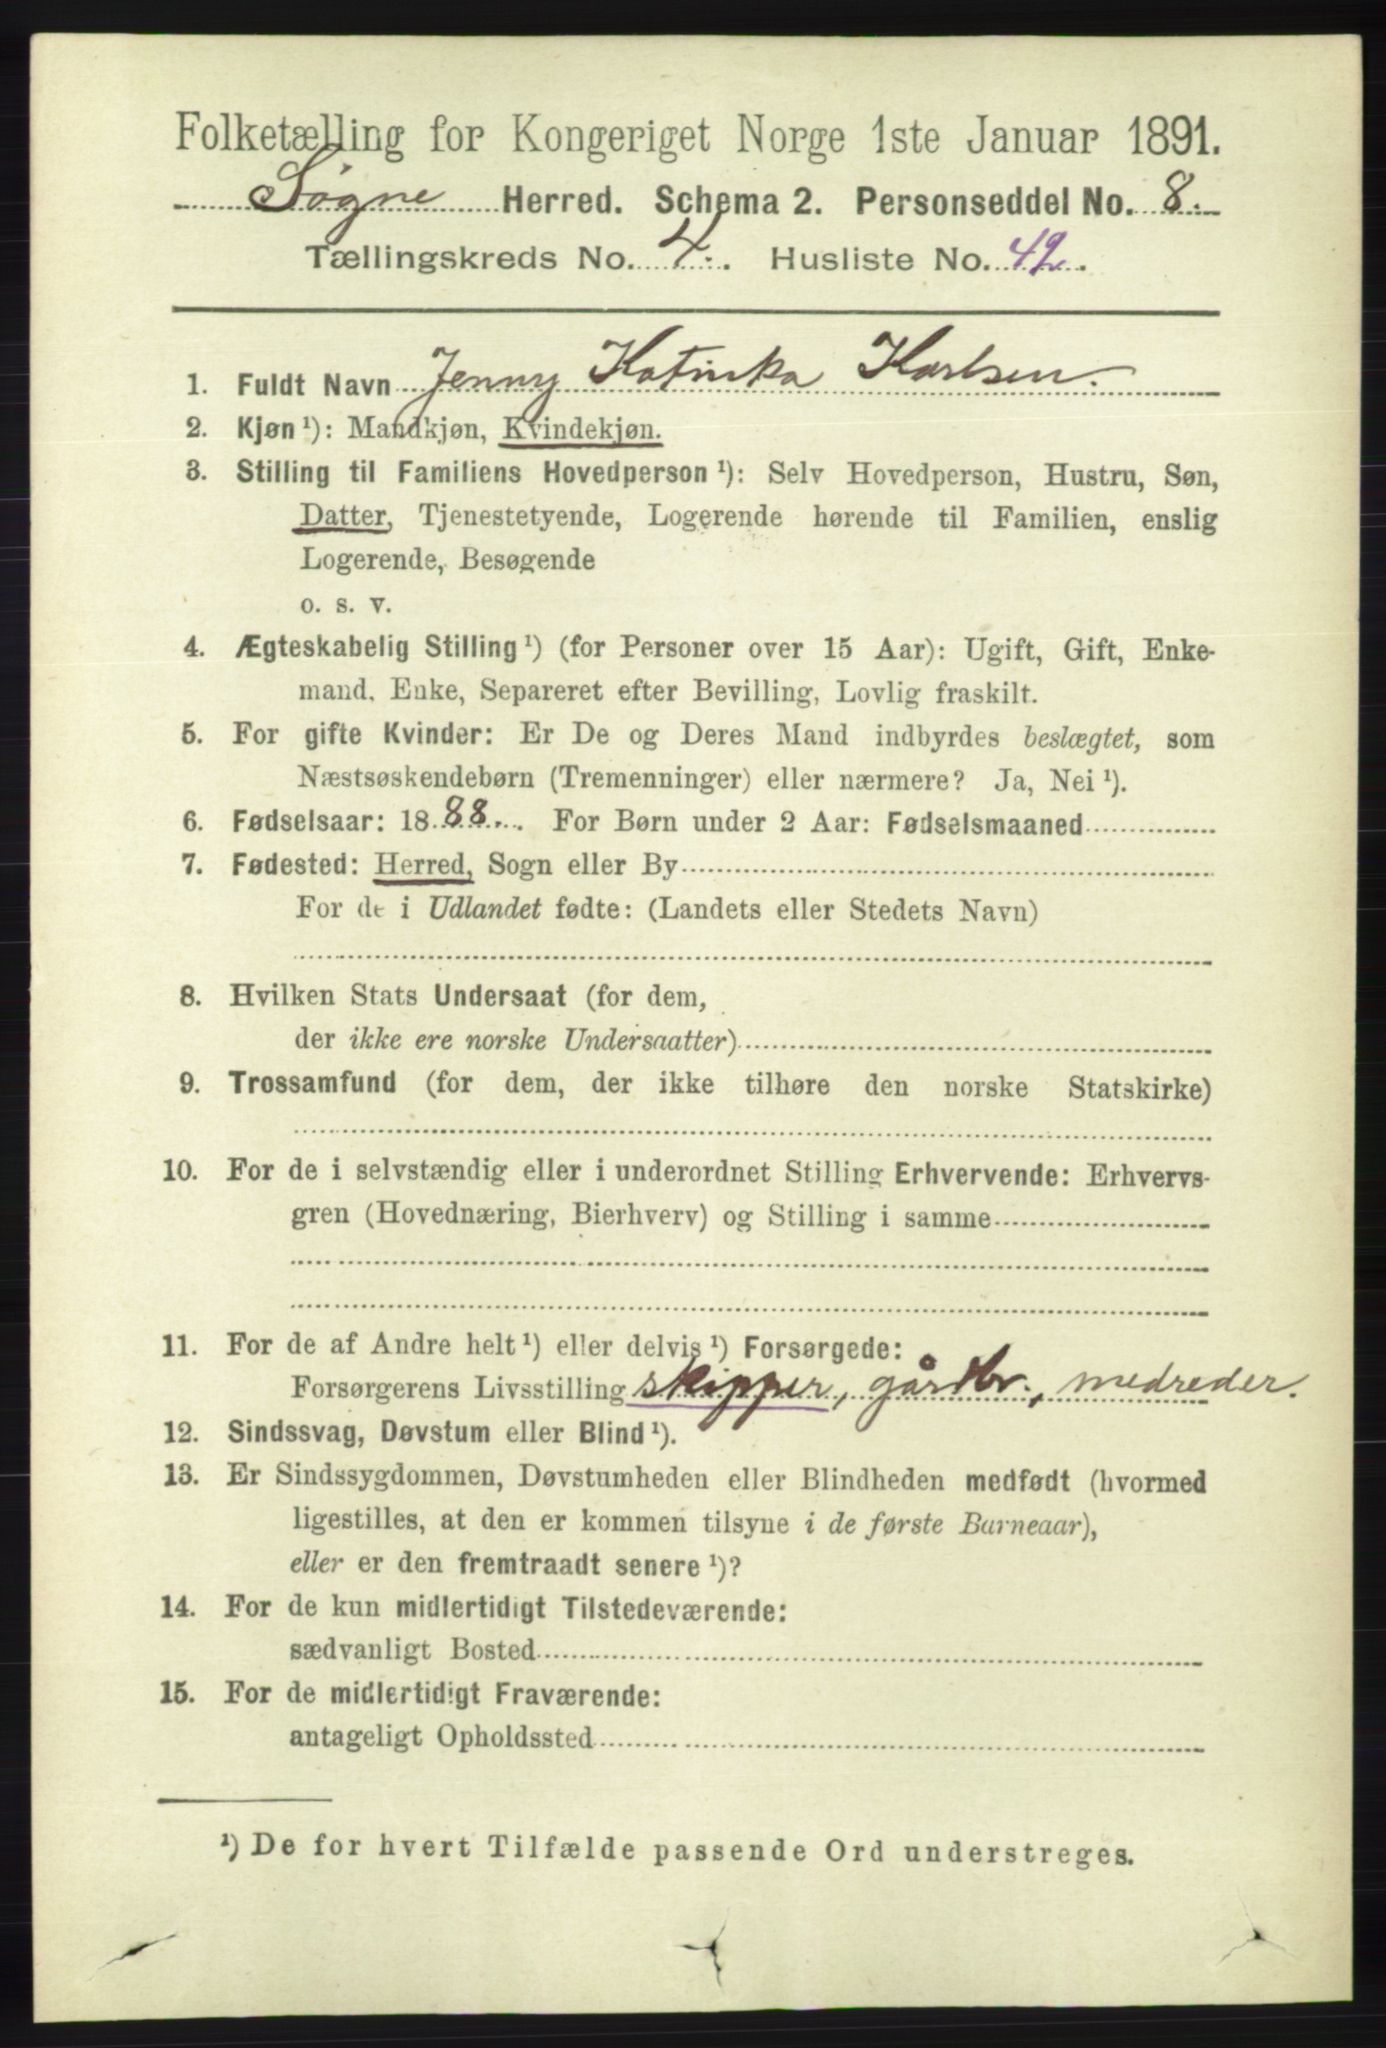 Folketælling for Kongeriget Norge 1ste Januar 1891.
Søgne Herred. Schema 2. Personseddel No. 8.
Tællingskreds No. 4. Husliste No. 42.
1. Fuldt Navn Jenny Katinka Karlsen.
2. Kjøn ¹): Mandkjøn, Kvindekjøn.
3. Stilling til Familiens Hovedperson ¹): Selv Hovedperson, Hustru, Søn,
Datter, Tjenestetyende, Logerende hørende til Familien, enslig
Logerende, Besøgende
o. s. v.
4. Ægteskabelig Stilling ¹) (for Personer over 15 Aar): Ugift, Gift, Enke-
mand, Enke, Separeret efter Bevilling, Lovlig fraskilt.
5. For gifte Kvinder: Er De og Deres Mand indbyrdes beslægtet, som
Næstsøskendebørn (Tremenninger) eller nærmere? Ja, Nei ¹).
6. Fødselsaar: 1888. For Børn under 2 Aar: Fødselsmaaned
7. Fødested: Herred, Sogn eller By
For de i Udlandet fødte: (Landets eller Stedets Navn)
8. Hvilken Stats Undersaat (for dem,
der ikke ere norske Undersaatter)
9. Trossamfund (for dem, der ikke tilhøre den norske Statskirke)
10. For de i selvstændig eller i underordnet Stilling Erhvervende: Erhvervs-
gren (Hovednæring, Bierhverv) og Stilling i samme
11. For de af Andre helt ¹) eller delvis ¹) Forsørgede:
Forsørgerens Livsstilling skipper, gårdbr., medreder.
12. Sindssvag, Døvstum eller Blind ¹).
13. Er Sindssygdommen, Døvstumheden eller Blindheden medfødt (hvormed
ligestilles, at den er kommen tilsyne i de første Barneaar),
eller er den fremtraadt senere ¹)?
14. For de kun midlertidigt Tilstedeværende:
sædvanligt Bosted
15. For de midlertidigt Fraværende:
antageligt Opholdssted
¹) De for hvert Tilfælde passende Ord understreges.